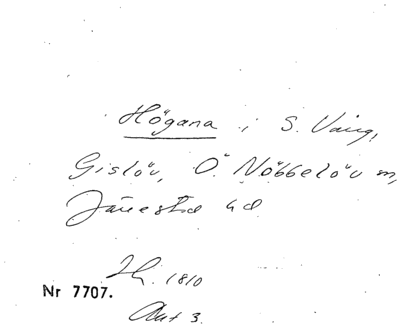 Högana i S. Vång,
Gislöv, Ö. Nöbbelöv m,
Järrestad hd
1810
Nr 7707.
Akt 3.